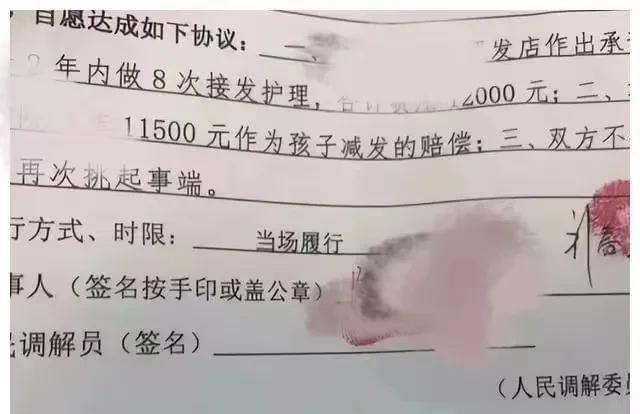 自愿达成如下协议：一、 发店作出承
2年内做8次接发护理， 12000元；二、
11500元作为孩子减发的赔偿；三、双方不
再次挑起事端。
行方式、时限： 当场履行
事人（签名按手印或盖公章）
民调解员（签名）
（人民调解委员